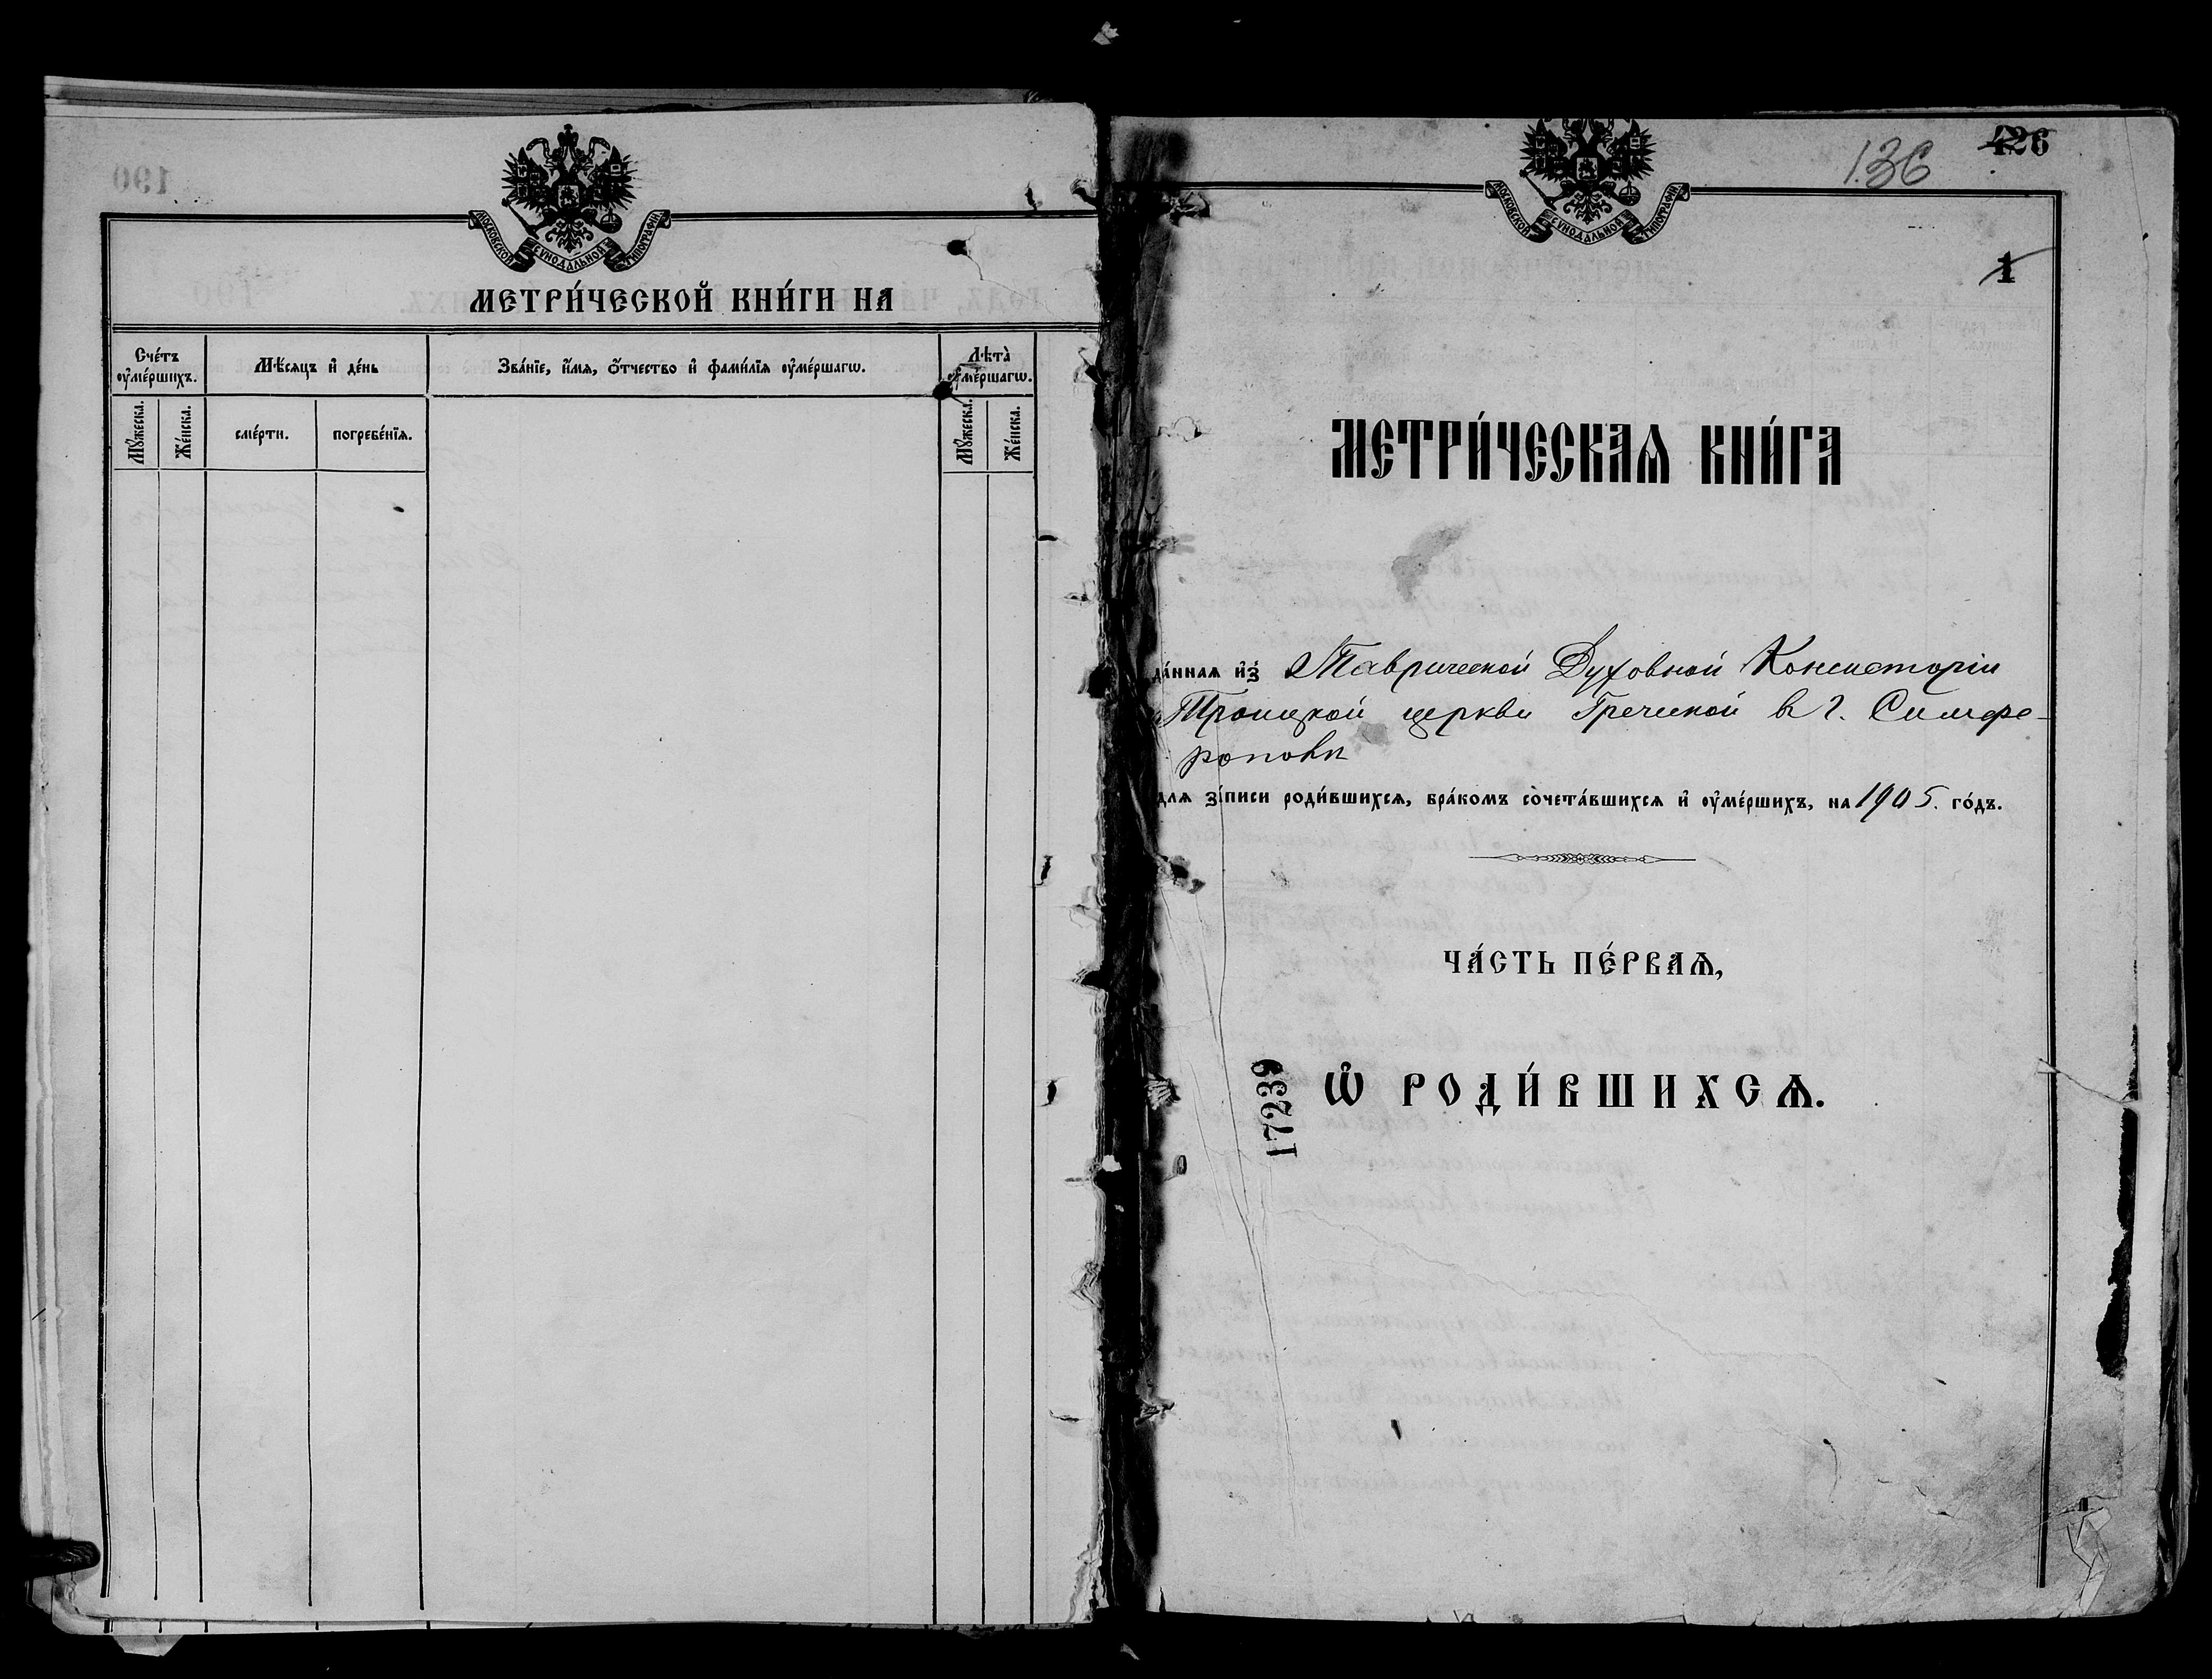 190
МОСКОВСКОЙ СУНОДАЛЬНОЙ ТИПОГРАФІИ
МЕТРИ́ЧЕСКОЙ КНИ́ГИ НА
Сче́тъ ᲂу҆ме́ршихъ.
Мѣ́сяцъ и҆ де́нь
Зва́нїе, и҆́мѧ, ѻ҆́тчество и҆ фами́лїѧ ᲂу҆ме́ршагѡ.
Лѣта̀ ᲂу҆ме́ршагѡ.
Мꙋ́жеска.
Же́нска.
сме́рти.
погребе́нїѧ.
Мꙋ́жеска.
Же́нска.
136
426
МОСКОВСКОЙ СУНОДАЛЬНОЙ ТИПОГРАФІИ
1
МЕТРИ́ЧЕСКАѦ КНИ́ГА
да́ннаѧ и҆з̾ Таврической Духовной Консисторіи
Троицкой церкви Греческой в г. Симфе-
рополѣ
для за́писи роди́вшихсѧ, бра́комъ сочета́вшихсѧ и҆ ᲂу҆ме́ршихъ, на 1905. го́дъ.
ЧА́СТЬ ПЕ́РВАѦ,
Ѡ҆ РОДИ́ВШИХСѦ.
17239